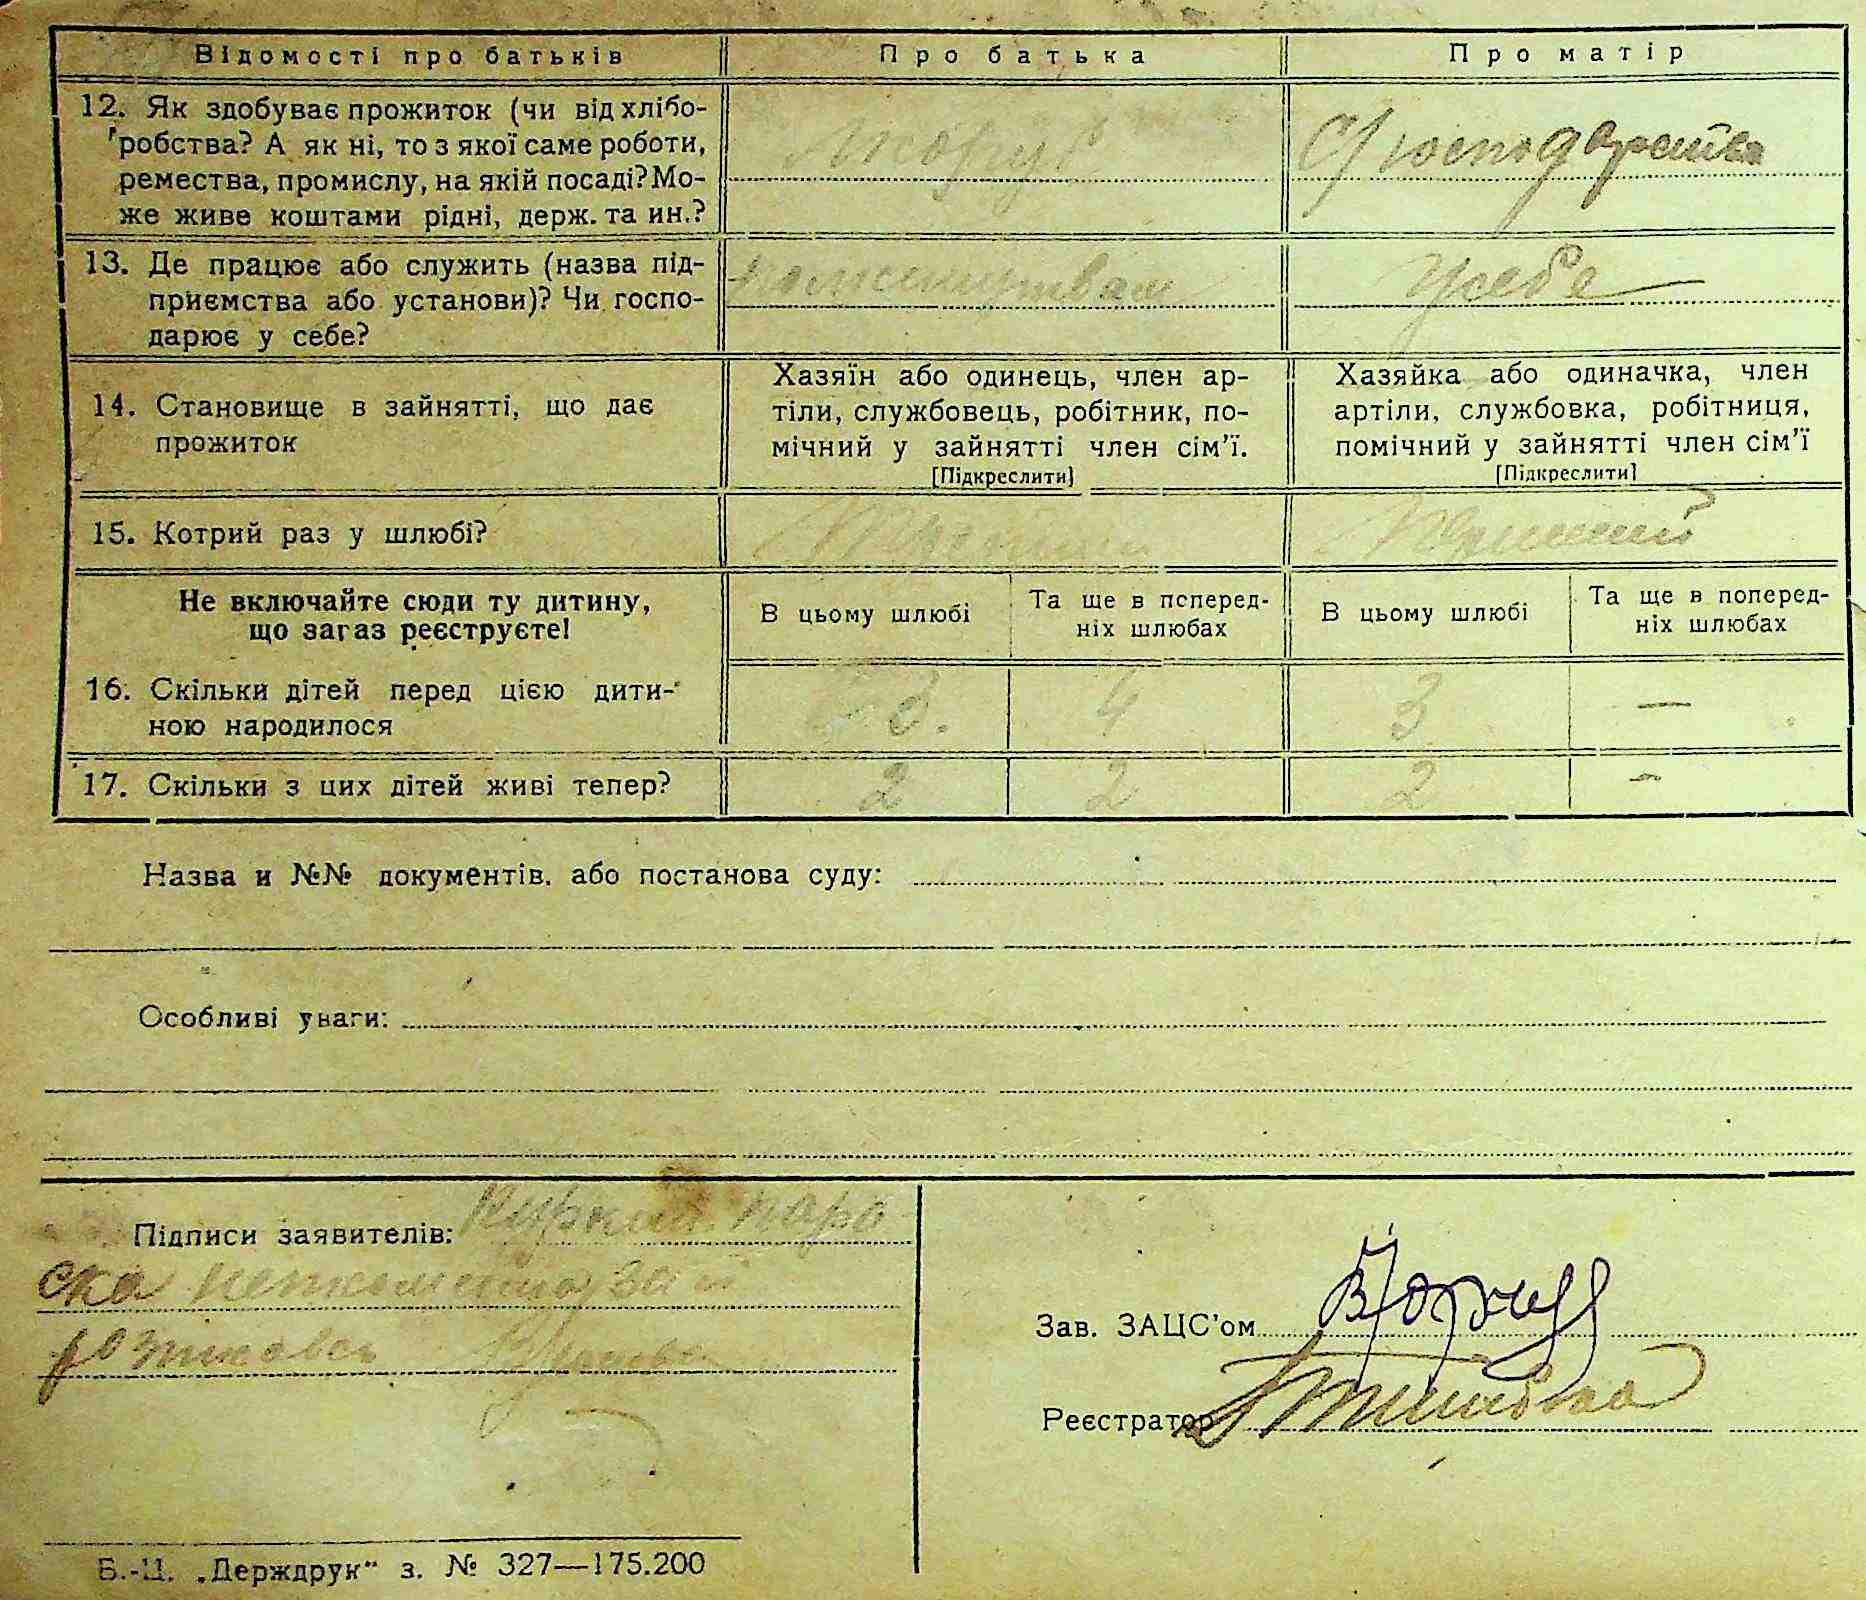 Відомості про батьків
Про батька
Про матір
12. Як здобуває прожиток (чи від хлібо-
робства? А як ні, то з якої саме роботи,
ремества, промислу, на якій посаді? Мо-
же живе коштами рідні, держ. та ин.?
13. Де працює або служить (назва під-
приємства або установи)? Чи госпо-
дарює у себе?
усебе
14. Становище в зайнятті, що дає
прожиток
Хазяїн або одинець, член ар-
тіли, службовець, робітник, по-
мічний у зайнятті член сім'ї.
[Підкреслити]
Хазяйка або одиначка, член
артіли, службовка, робітниця,
помічний у зайнятті член сім'ї
[Підкреслити]
15. Котрий раз у шлюбі?
Не включайте сюди ту дитину,
що загаз реєструєте!
В цьому шлюбі
Та ще в поперед-
ніх шлюбах
В цьому шлюбі
Та ще в поперед-
ніх шлюбах
16. Скільки дітей перед цією дити-
ною народилося
4
3
—
17. Скільки з цих дітей живі тепер?
2
2
2
—
Назва и №№ документів. або постанова суду:
Особливі уваги:
Підписи заявителів:
ска
Зав. ЗАЦС'ом
Реєстратор
Б.-Ц. „Держдрук" з. № 327—175.200